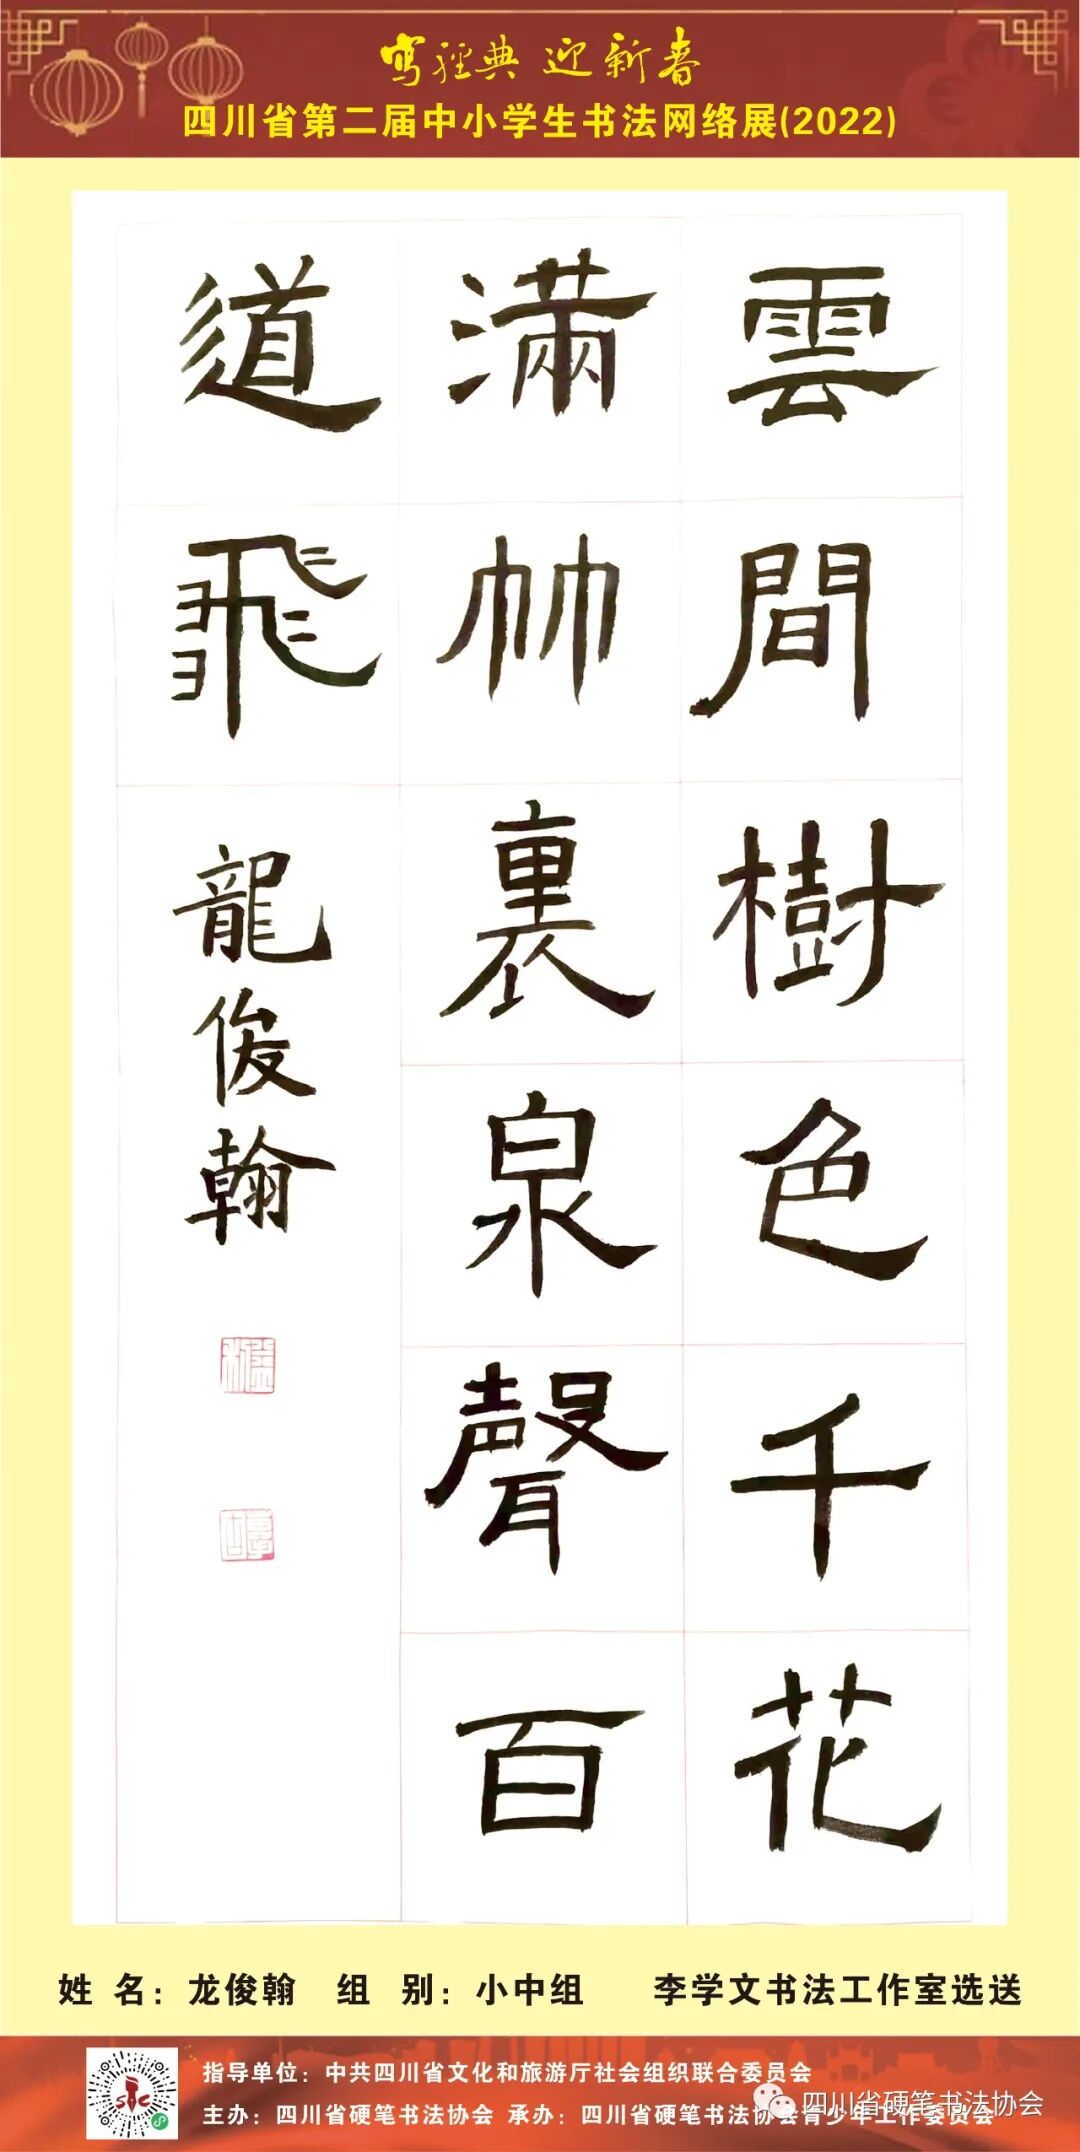 写經典 迎新春
四川省第二届中小学生书法网络展(2022)
雲間樹色千花
滿竹裏泉聲百
道飛
龍俊翰
姓 名：龙俊翰 组 别：小中组 李学文书法工作室选送
指导单位：中共四川省文化和旅游厅社会组织联合委员会
主办：四川省硬笔书法协会 承办：四川省硬笔书法协会青少年工作委员会
四川省硬笔书法协会